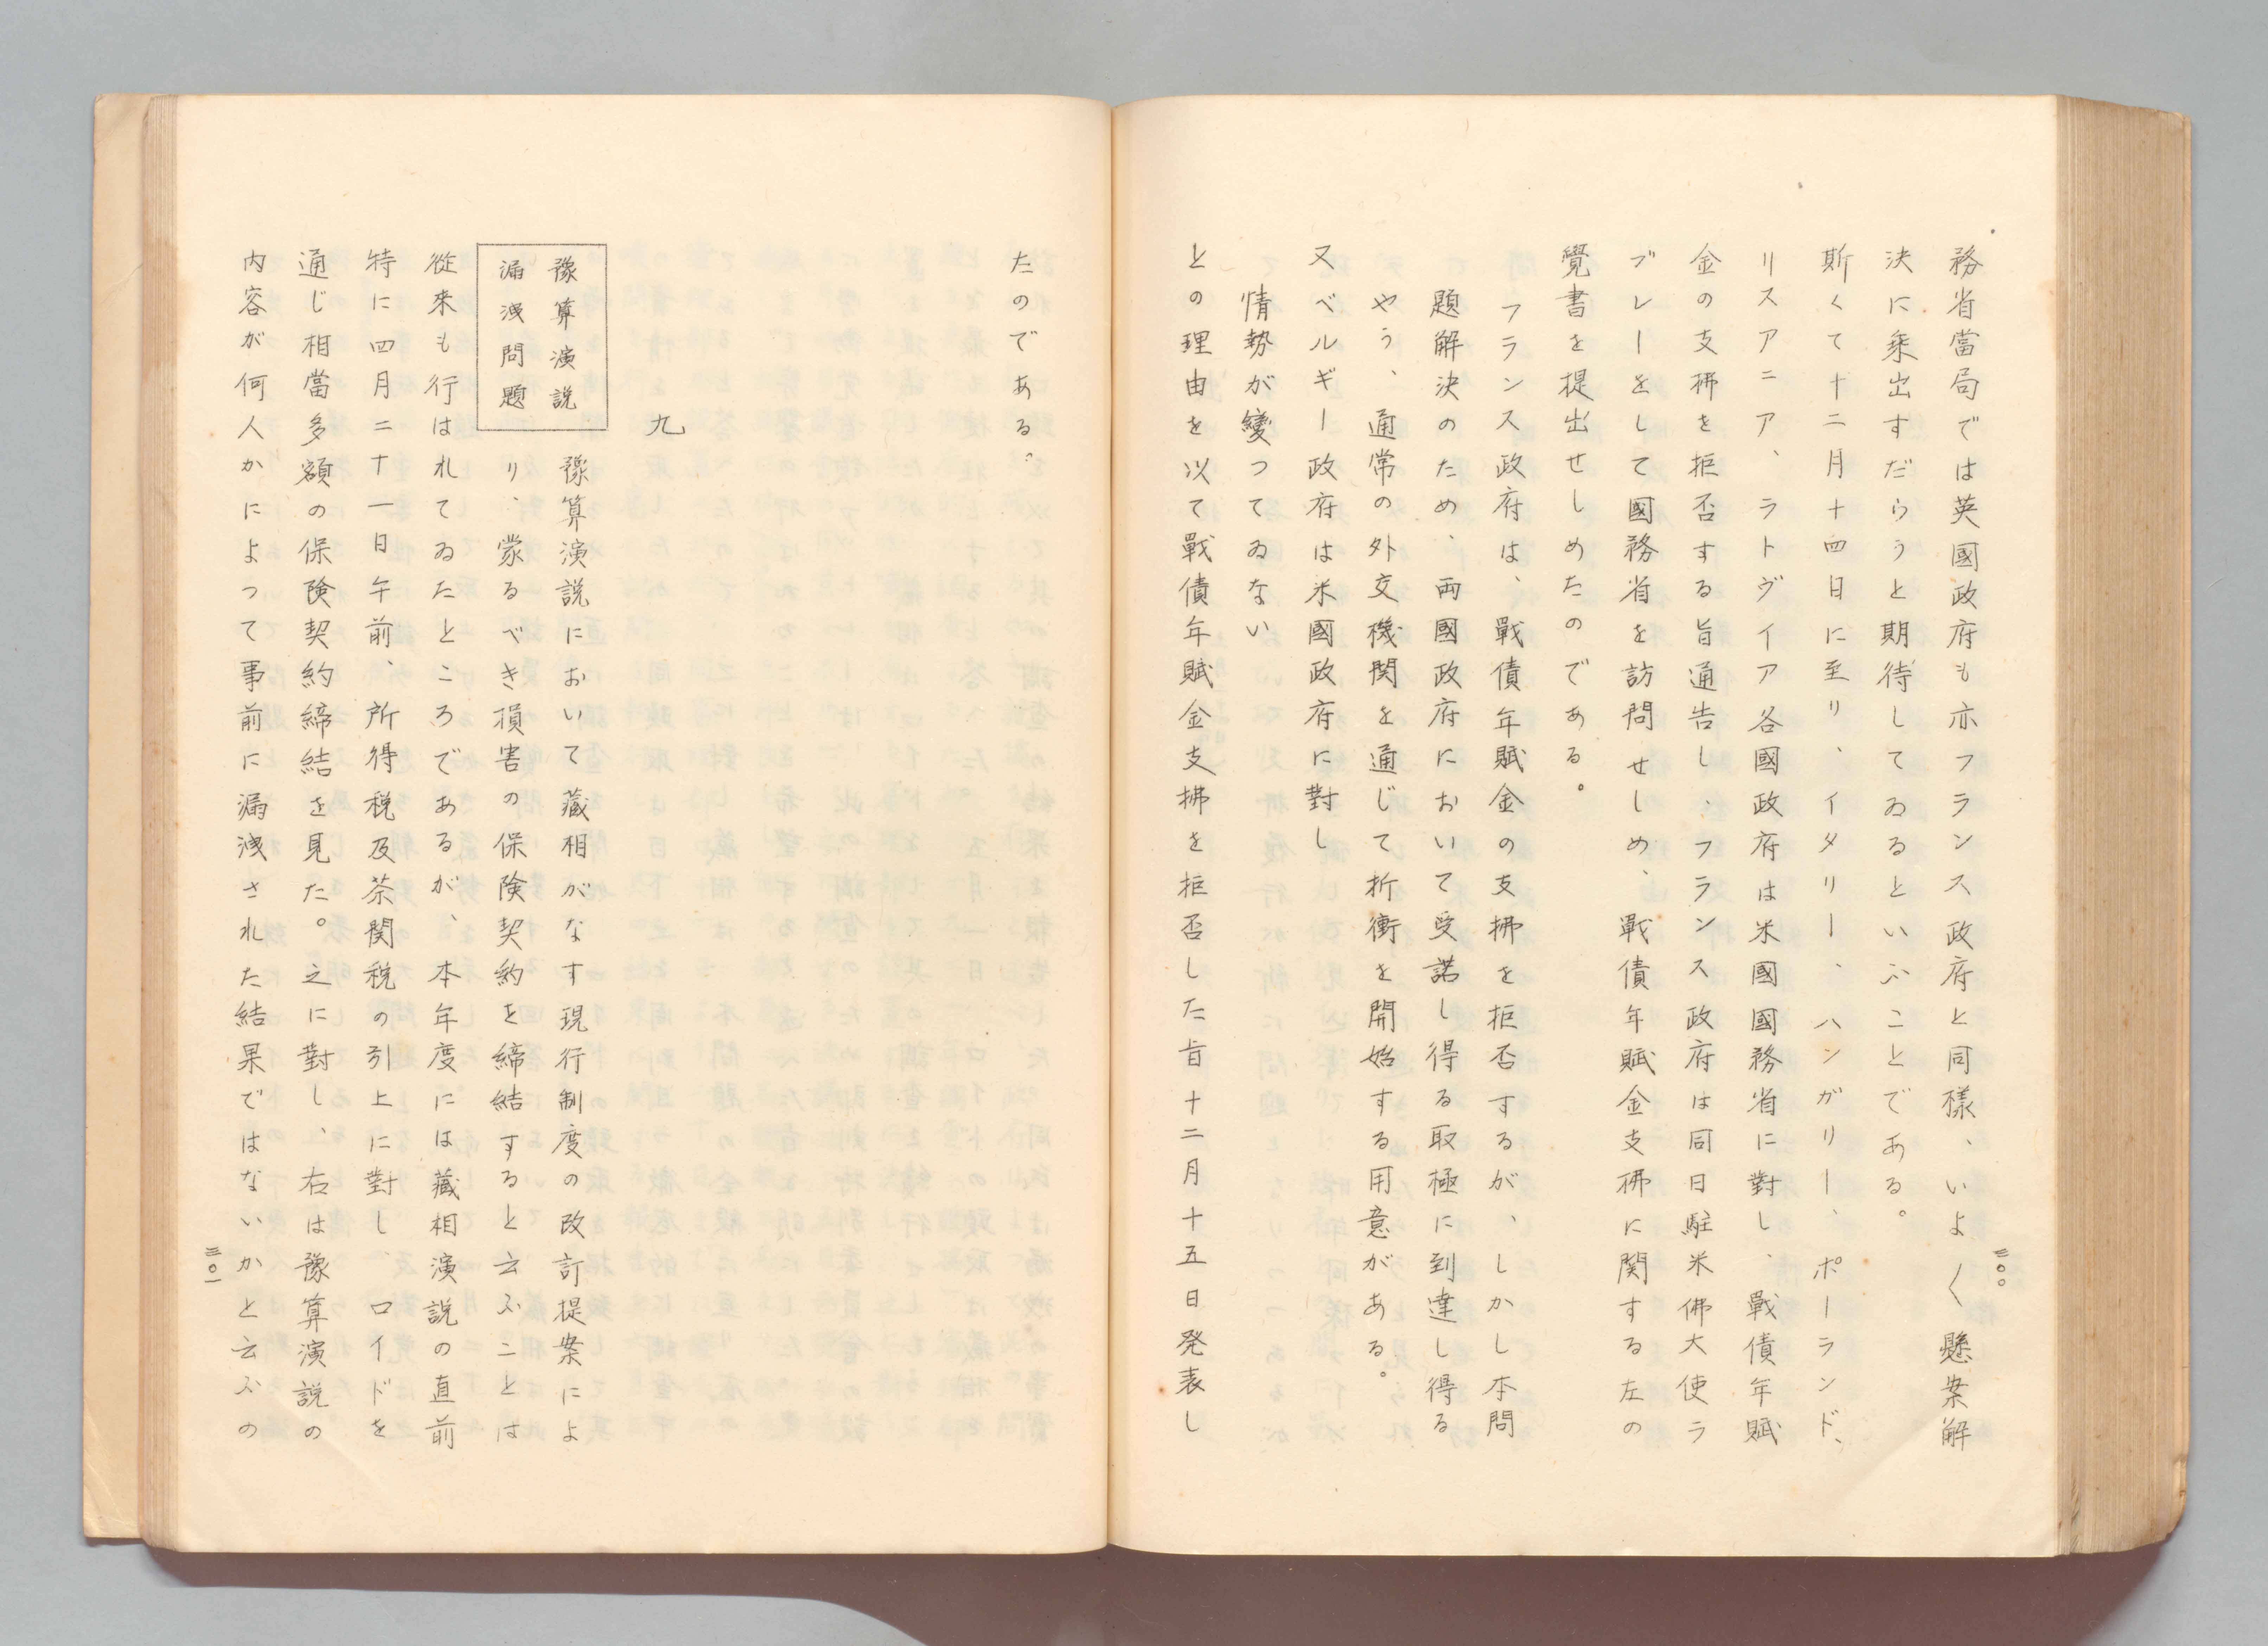 務省當局では英國政府も亦フランス政府と同樣、いよ〱懸案解
決に乘出すだらうと期待してゐるといふことである。
斯くて十二月十四日に至り、イタリー、ハンガリー、ポーランド、
リスアニア、ラトヴイア各國政府は米國國務省に對し、戰債年賦
金の支拂を拒否する旨通告し、フランス政府は同日駐米佛大使ラ
ブレーをして國務省を訪問せしめ、戰債年賦金支拂に関する左の
覺書を提出せしめたのである。
フランス政府は、戰債年賦金の支拂を拒否するが、しかし本問
題解決のため、両國政府において受諾し得る取極に到達し得る
やう、通常の外交機関を通じて折衝を開始する用意がある。
又ベルギー政府は米國政府に對し
情勢が變つてゐない
との理由を以て戰債年賦金支拂を拒否した旨十二月十五日発表し
三〇〇
たのである。
九
豫算演説
漏洩問題
豫算演説において藏相がなす現行制度の改訂提案によ
り、蒙るべき損害の保険契約を締結すると云ふことは
從來も行はれてゐたところであるが、本年度には藏相演説の直前
特に四月二十一日午前、所得税及茶関税の引上に對し、ロイドを
通じ相當多額の保険契約締結を見た。之に對し、右は豫算演説の
内容が何人かによつて事前に漏洩された結果ではないかと云ふの
三〇一